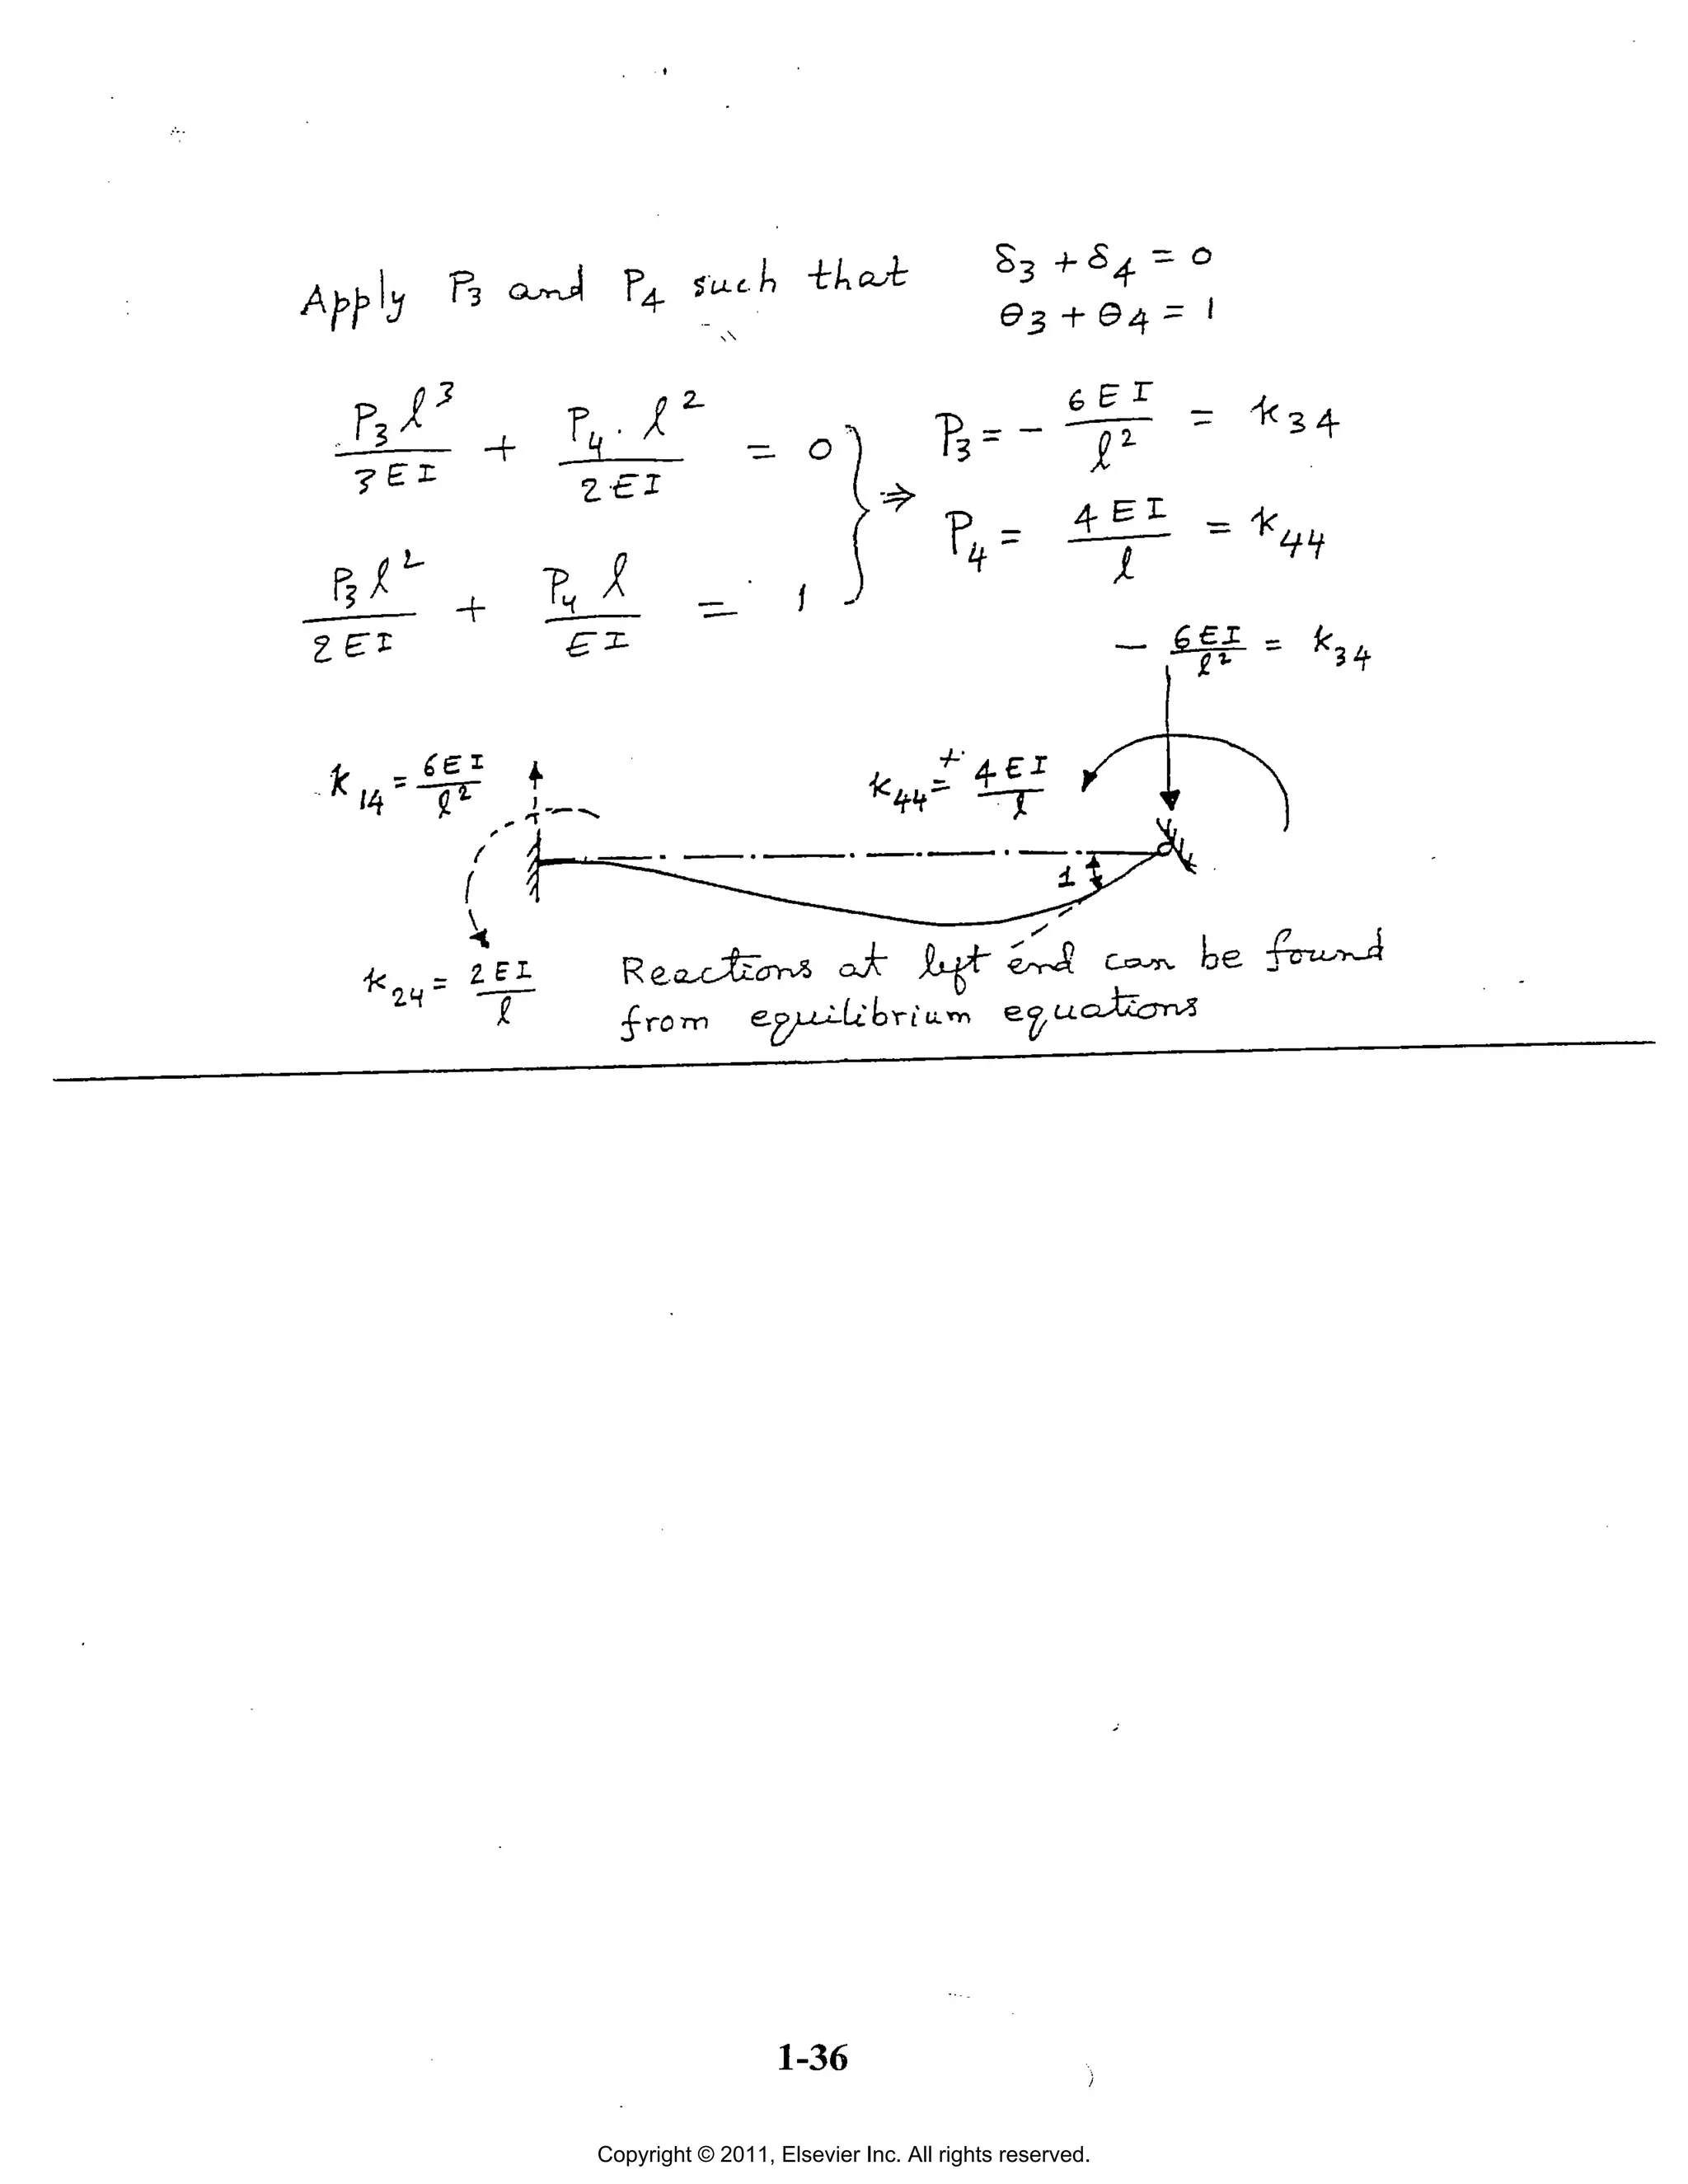 Apply P3 and P4 such that δ3 + δ4 = 0
θ3 + θ4 = 1
P3 l^3 / 3EI + P4 . l^2 / 2EI = 0 } ⇒ P3 = - 6EI / l^2 = k34
P3 l^2 / 2EI + P4 l / EI = 1 P4 = 4EI / l = k44
- 6EI / l^2 = k34
k14 = 6EI / l^2
k44 = + 4EI / l
1
k24 = 2EI / l
Reactions at left end can be found
from equilibrium equations
1-36
Copyright © 2011, Elsevier Inc. All rights reserved.